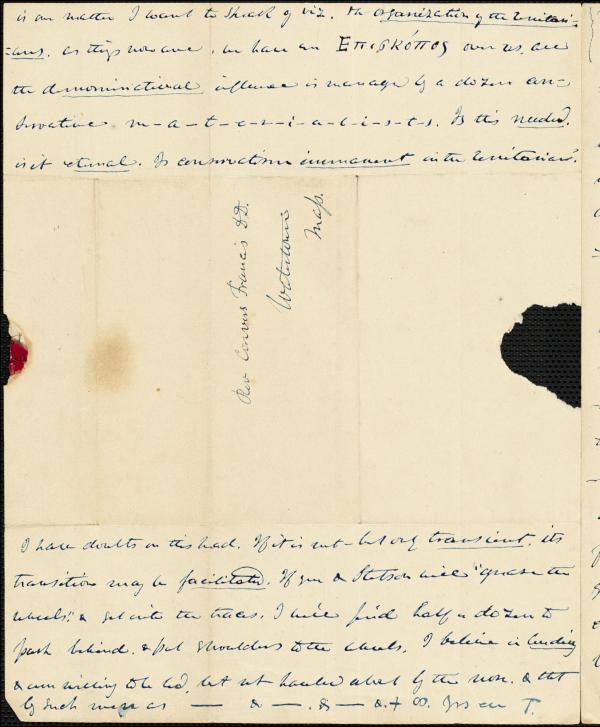 is one matter I want to Speak of viz. the organization of the Unitari-
-ans. as things now are, we have an Επισκόπος over us, and
the denominational influence is managed by a dozen con-
servative m-a-t-e-r-i-a-l-i-s-t-s. Is this needed,
is it eternal. Is conservatism immanent in the Unitarians.
Rev Convers Francis D.D.
Watertown
Mass.
I have doubts on this head. If it is not but only transient, its
transition may be facilitated. If you & Stetson will "grease the
wheels" & get into the traces, I will find half a dozen to
push behind, & put shoulders to the wheels. I believe in leading
& am willing to be led, but not hauled about by the nose, & that
by such men as — & —, & — & + ∞. Yrs en T.